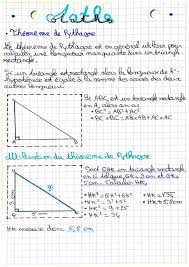 Maths
• Théorème de Pythagore
Le théorème de Pythagore est en général utilisé pour
calculer une longueur manquante dans un triangle
rectangle.
Si un triangle est rectangle alors la longueur de l'
hypoténuse est égale à la somme des carrés des deux
autres longueurs.
Si ABC est un triangle rectangle
en A, alors on as
• BC² = AB² + AC²
• BC × BC = AB × AB + AC × AC
B
A
C
Utilisation du théorème de Pythagore
Soit GHK un triangle rectangle
en G
5 cm
• HK² =
• HK² =
• HK² = 9 +
• HK² = 34
• HK = √34
HK mesure donc 5,8 cm